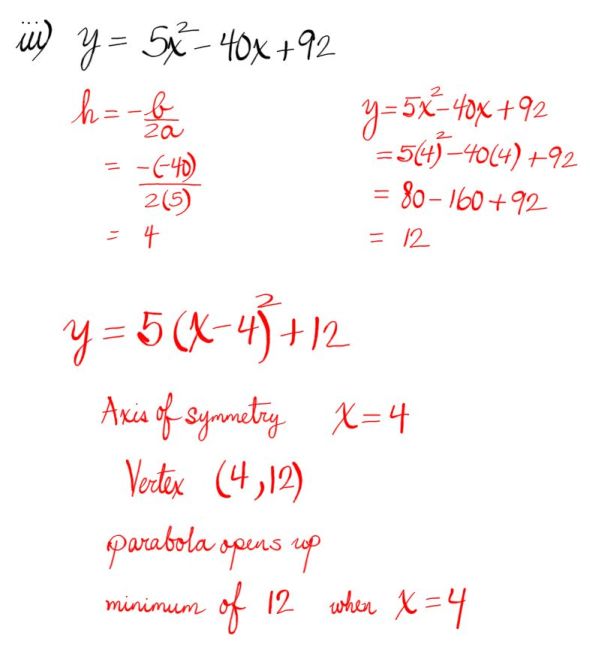 iii) y = 5x² - 40x + 92
h = -b/2a
= -(-40)/2(5)
= 4
y = 5x² - 40x + 92
= 5(4)² - 40(4) + 92
= 80 - 160 + 92
= 12
y = 5(x - 4)² + 12
Axis of symmetry x = 4
Vertex (4, 12)
parabola opens up
minimum of 12 when x = 4